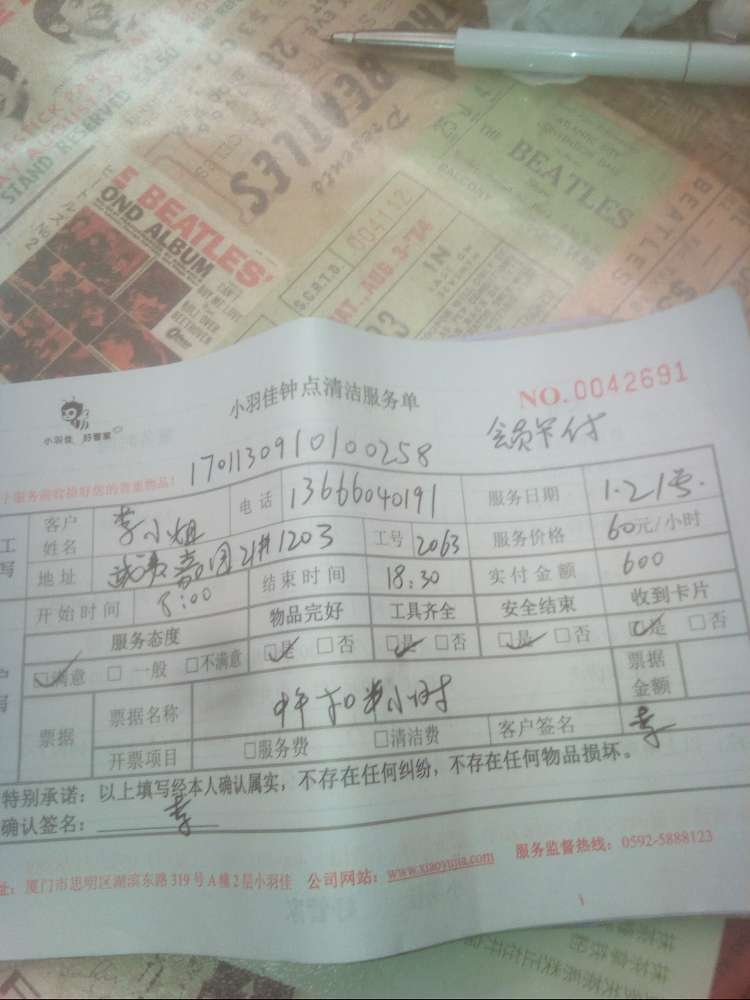 STAND RESERVED
THE BEATLES'
Presents
THE
BEATLES
BALCONY
004112
S.C.R.T.D.
SAT., AUG. 3-'74
IN
BEATLES'
OND ALBUM
ROLL OVER
BEETHOVEN
小羽佳 好管家
小羽佳钟点清洁服务单
NO.0042691
会员卡付
小服务前收拾好您的贵重物品!
1701130910100258
客户姓名 李小姐 电话 13666040191 服务日期 1.21号
地址 21#1203 工号 2063 服务价格 60元/小时
开始时间 8:00 结束时间 18:30 实付金额 600
服务态度 物品完好 工具齐全 安全结束 收到卡片
☑满意 □一般 □不满意 ☑是 □否 ☑是 □否 ☑是 □否 ☑是 □否
票据 票据名称 中午扣半小时 票据金额
开票项目 □服务费 □清洁费 客户签名 李
特别承诺:以上填写经本人确认属实,不存在任何纠纷,不存在任何物品损坏。
确认签名: 李
址:厦门市思明区湖滨东路319号A幢2层小羽佳 公司网站:www.xiaoyujia.com 服务监督热线:0592-5888123